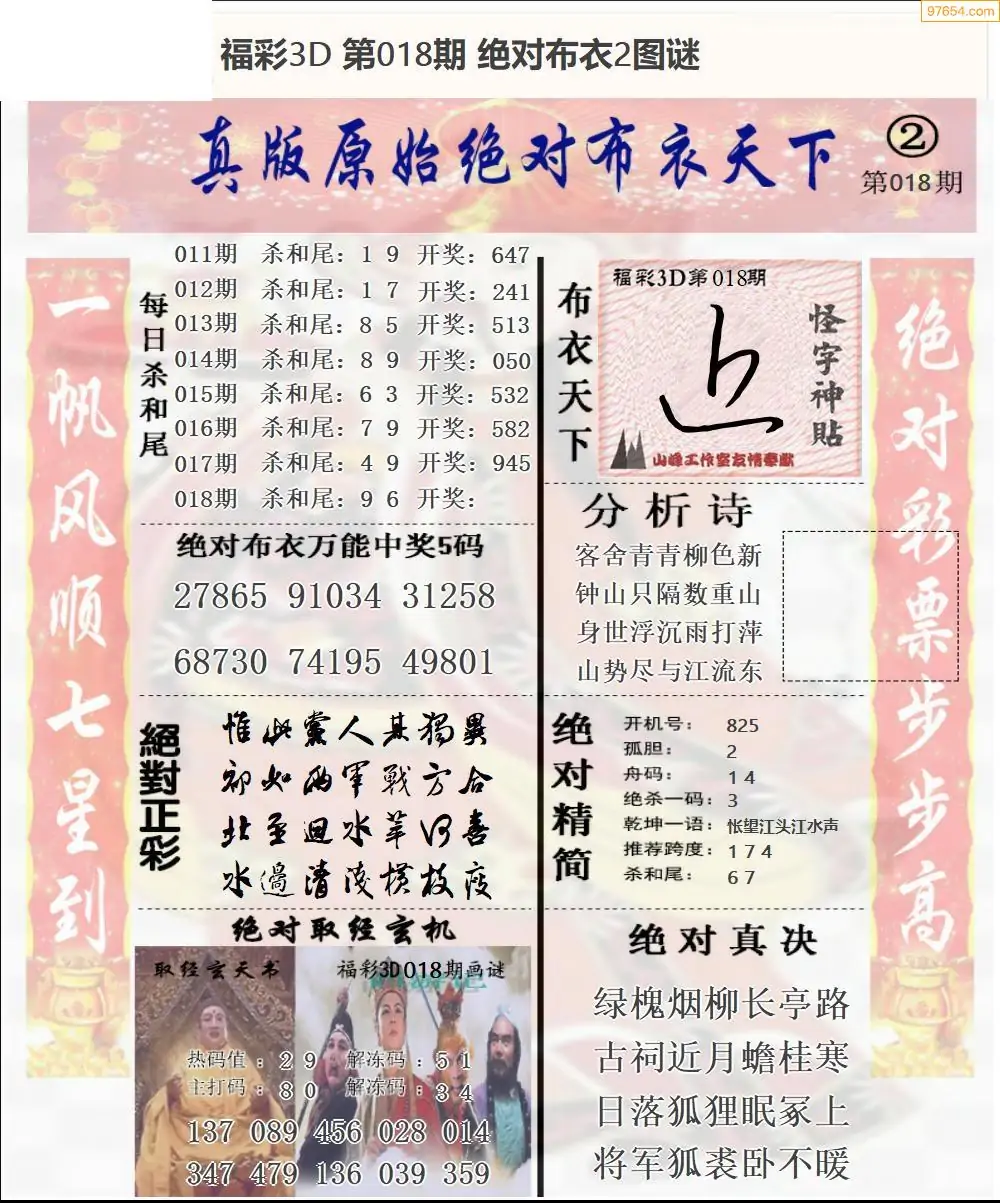 97654.com
福彩3D 第018期 绝对布衣2图谜
真版原始绝对布衣天下
②
第018期
一帆风顺七星到
每日杀和尾
011期 杀和尾：1 9 开奖：647
012期 杀和尾：1 7 开奖：241
013期 杀和尾：8 5 开奖：513
014期 杀和尾：8 9 开奖：050
015期 杀和尾：6 3 开奖：532
016期 杀和尾：7 9 开奖：582
017期 杀和尾：4 9 开奖：945
018期 杀和尾：9 6 开奖：
绝对布衣万能中奖5码
27865 91034 31258
68730 74195 49801
絕對正彩
惟此黨人其獨異
却如两軍戰方合
北至迴水萃何喜
水邊清淺横枝瘦
绝对取经玄机
取经玄天书
福彩3D018期画谜
热码值：2 9 解冻码：5 1
主打码：8 0 解冻码：3 4
137 089 456 028 014
347 479 136 039 359
布衣天下
福彩3D第018期
怪字神贴
山峰工作室友情奉献
分析诗
客舍青青柳色新
钟山只隔数重山
身世浮沉雨打萍
山势尽与江流东
绝对精简
开机号： 825
孤胆： 2
舟码： 1 4
绝杀一码：3
乾坤一语：怅望江头江水声
推荐跨度：1 7 4
杀和尾： 6 7
绝对真决
绿槐烟柳长亭路
古祠近月蟾桂寒
日落狐狸眠冢上
将军狐裘卧不暖
绝对彩票步步高